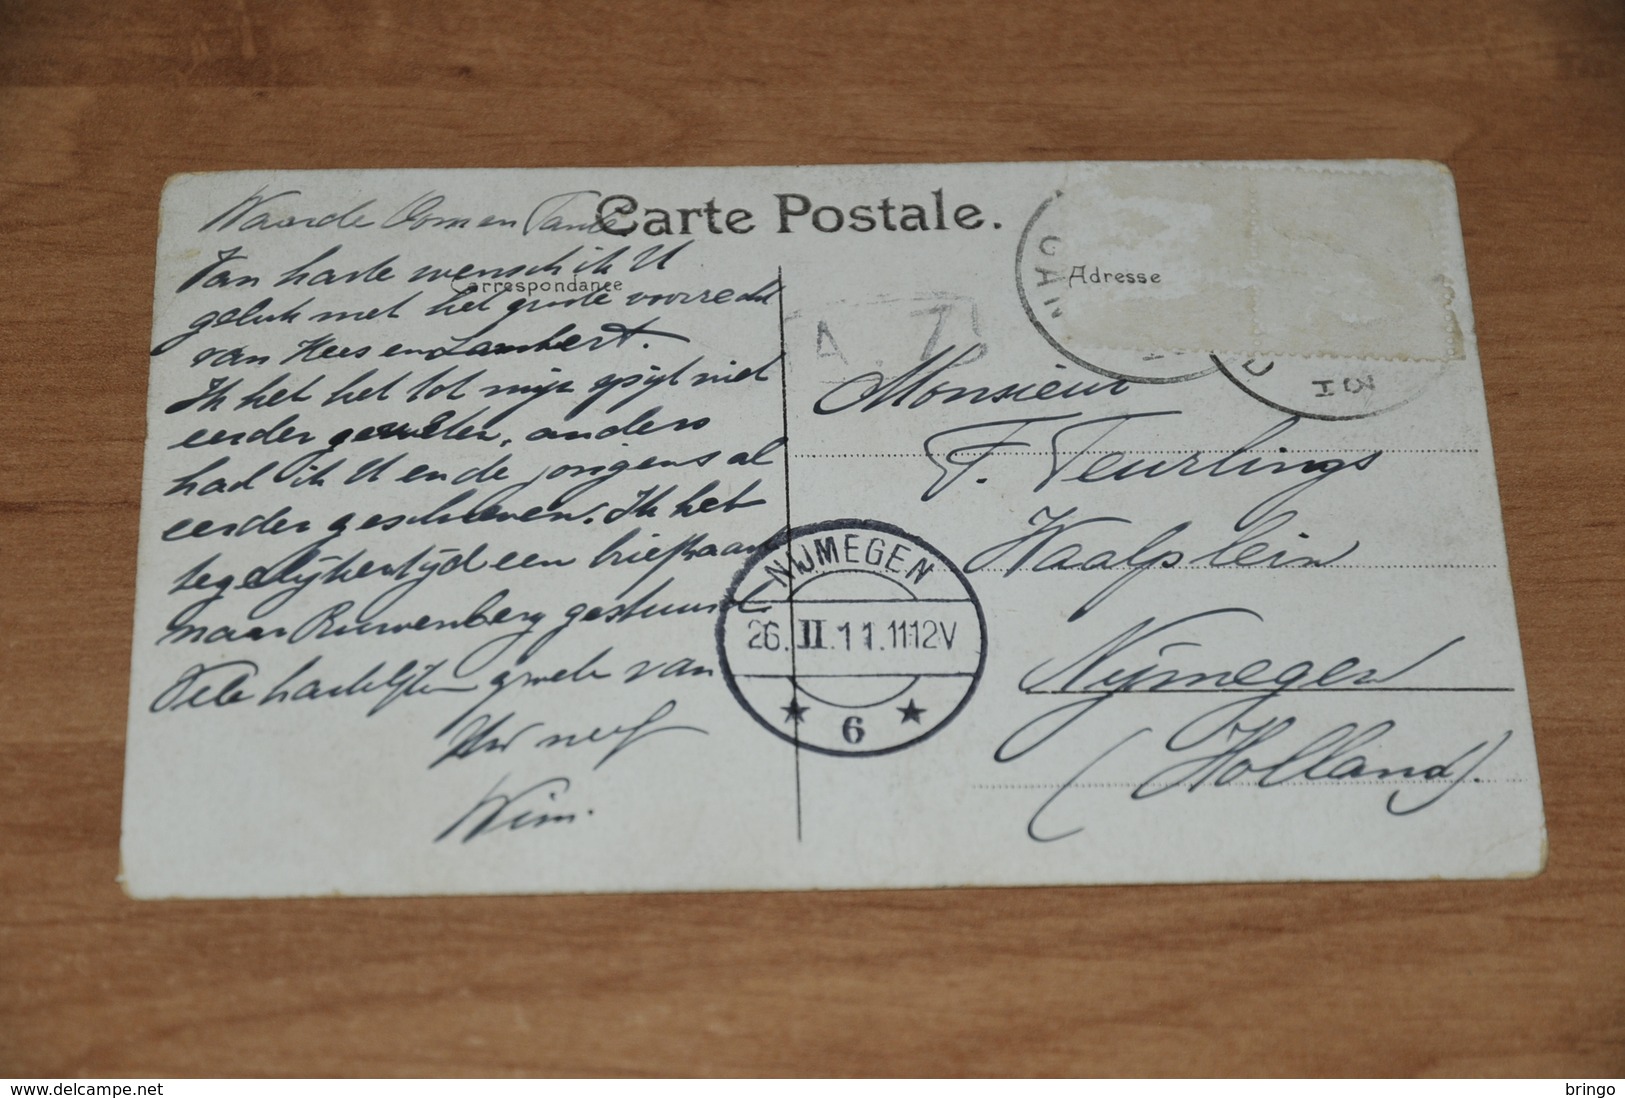 Carte Postale.
Correspondance
Adresse
Waarde Oom en Tante
Van harte wensch ik U
geluk met het groote voorrecht
van Kees en Lambert.
Ik heb het tot mijn spijt niet
eerder geweten, anders
had ik U en de jongens al
eerder geschreven. Ik heb
tegelijkertijd een briefkaart
naar Ruwenberg gestuurd.
Vele hartelijken groete van
Uw neef
Wim.
A. 7
Monsieur
F. Teurlings
Waalplein
Nijmegen
(Holland).
NIJMEGEN
26.II.11.11-12V
6
delcampe.net
bringo